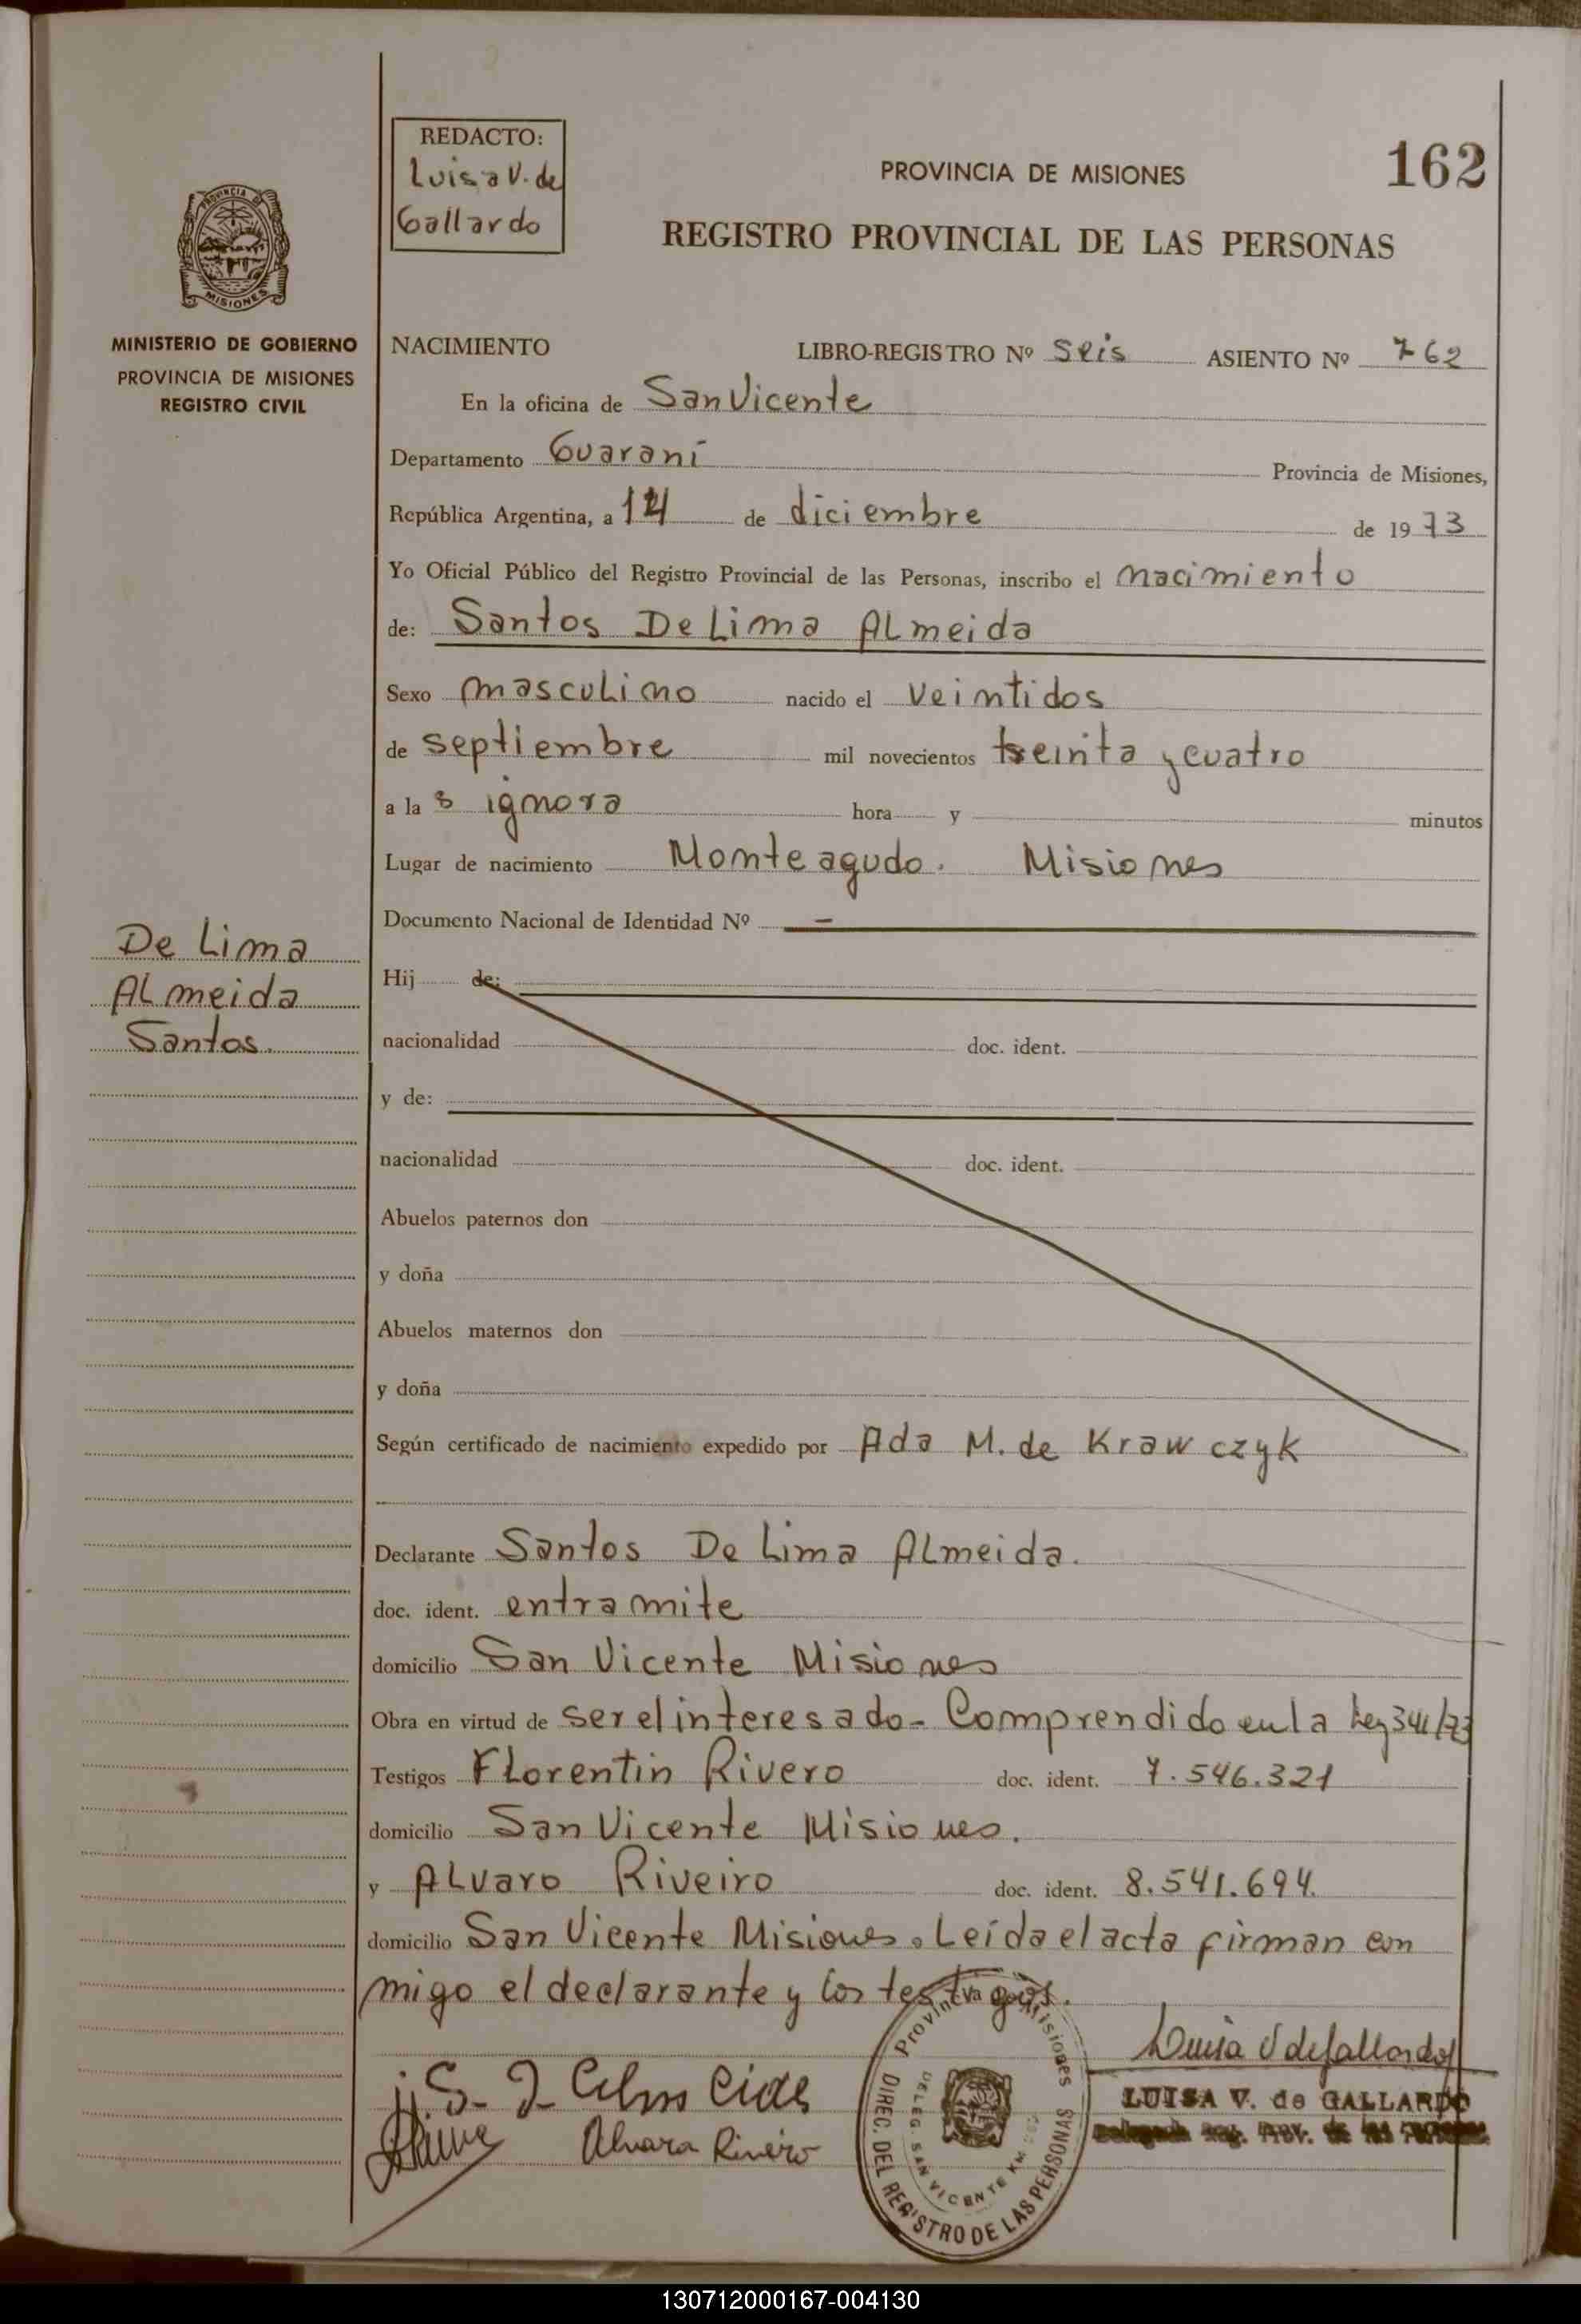 REDACTO:
Luisa V. de
Gallardo
PROVINCIA DE MISIONES
162
REGISTRO PROVINCIAL DE LAS PERSONAS
PROVINCIA DE
MISIONES
MINISTERIO DE GOBIERNO
PROVINCIA DE MISIONES
REGISTRO CIVIL
NACIMIENTO LIBRO-REGISTRO Nº Seis ASIENTO Nº 762
En la oficina de San Vicente
Departamento Guaraní Provincia de Misiones,
República Argentina, a 14 de diciembre de 1973
Yo Oficial Público del Registro Provincial de las Personas, inscribo el nacimiento
de: Santos De Lima ALmeida
Sexo masculino nacido el veintidos
de septiembre mil novecientos treinta y cuatro
a la s ignora hora y minutos
Lugar de nacimiento Monteagudo. Misiones
Documento Nacional de Identidad Nº —
De Lima
ALmeida
Santos.
Hij de:
nacionalidad doc. ident.
y de:
nacionalidad doc. ident.
Abuelos paternos don
y doña
Abuelos maternos don
y doña
Según certificado de nacimiento expedido por Ada M. de Krawczyk
Declarante Santos De Lima ALmeida.
doc. ident. entramite
domicilio San Vicente Misiones
Obra en virtud de ser el interesado- Comprendido en la Ley 341/73
Testigos Florentin Rivero doc. ident. 7.546.321
domicilio San Vicente Misiones.
y ALvaro Riveiro doc. ident. 8.541.694.
domicilio San Vicente Misiones. Leída el acta firman con
migo el declarante y los testigos.
Provincia de Misiones
DIREC. DEL REGISTRO DE LAS PERSONAS
DELEG. SAN VICENTE KM.
Luisa V de Gallardo
LUISA V. de GALLARDO
Reg. Prov. de las
Alvara Riveiro
130712000167-004130